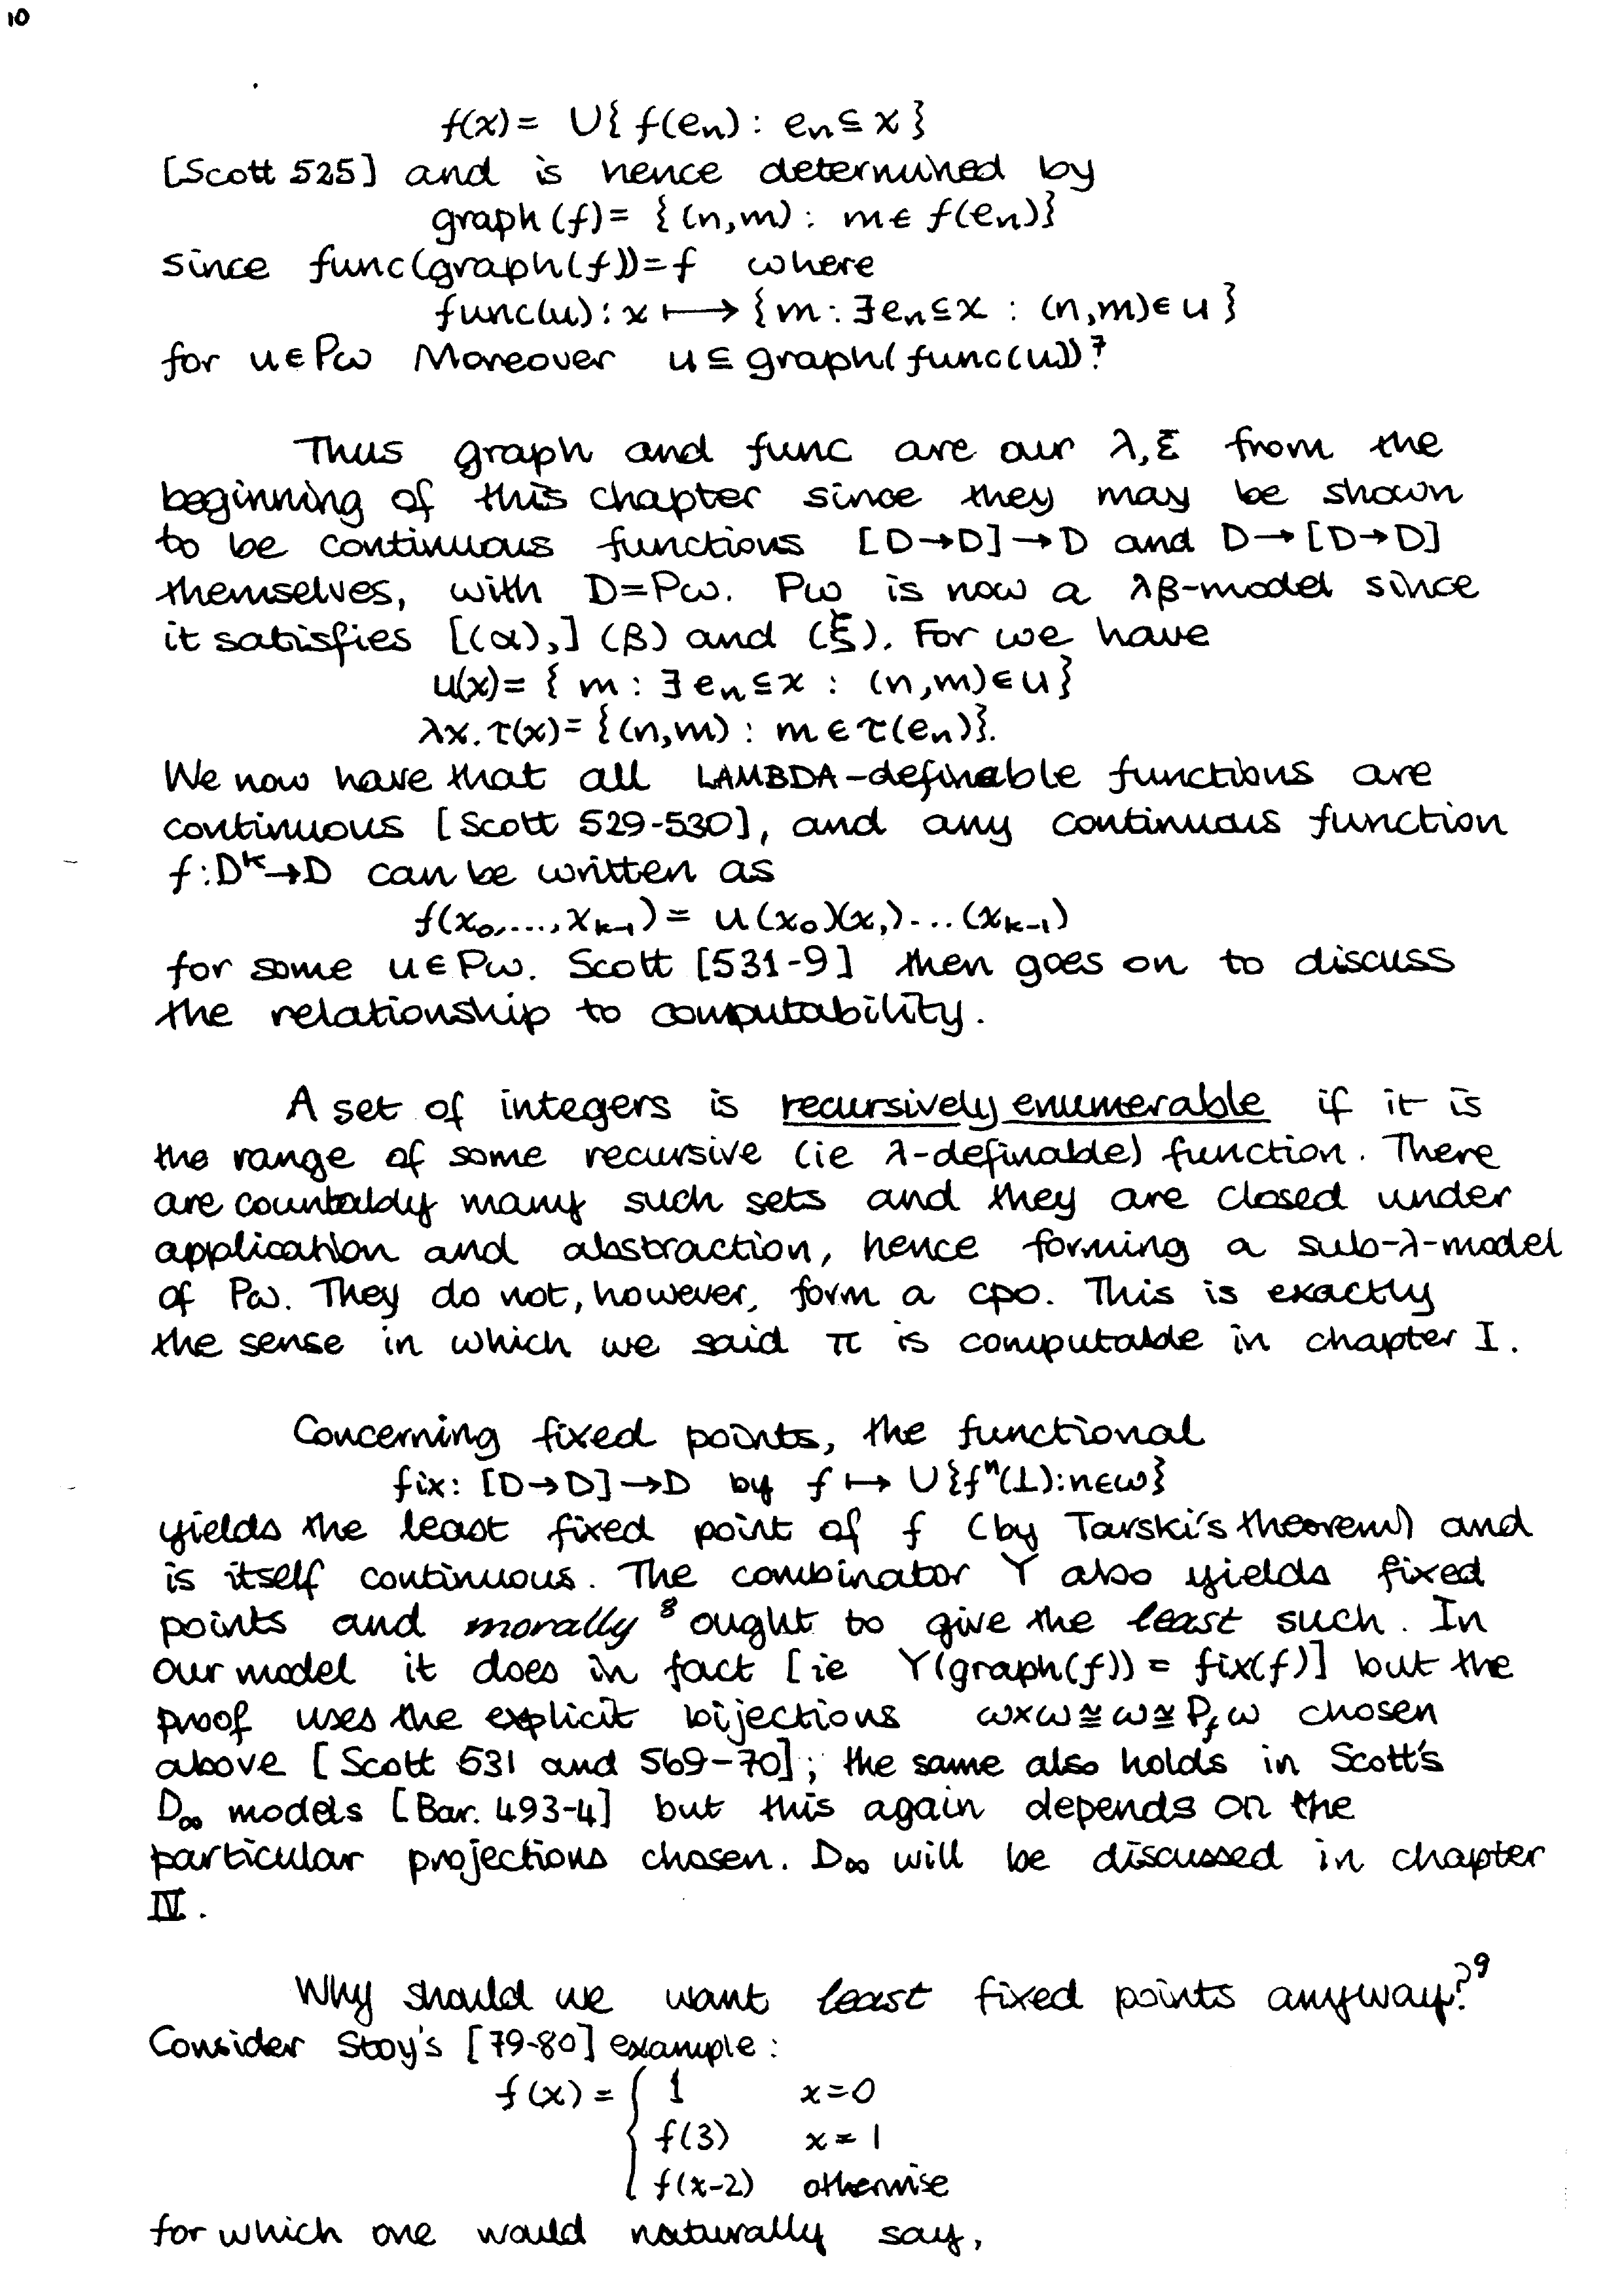 10
f(x) = ∪{ f(eₙ) : eₙ ⊆ x }
[Scott 525] and is hence determined by
graph (f) = { (n,m) : m ∈ f(eₙ)}
since func(graph(f)) = f where
func(u) : x ⟼ { m : ∃ eₙ ⊆ x : (n,m) ∈ u }
for u ∈ Pω Moreover u ⊆ graph( func(u)).⁷
Thus graph and func are our λ, ξ from the
beginning of this chapter since they may be shown
to be continuous functions [D→D]→D and D→[D→D]
themselves, with D=Pω. Pω is now a λβ-model since
it satisfies [(α),] (β) and (ξ). For we have
u(x) = { m : ∃ eₙ ⊆ x : (n,m) ∈ u }
λx. τ(x) = {(n,m) : m ∈ τ(eₙ)}.
We now have that all LAMBDA-definable functions are
continuous [Scott 529-530], and any continuous function
f : Dᵏ→D can be written as
f(x₀,...., xₖ₋₁) = u(x₀)(x₁)...(xₖ₋₁)
for some u ∈ Pω. Scott [531-9] then goes on to discuss
the relationship to computability.
A set of integers is recursively enumerable if it is
the range of some recursive (ie λ-definable) function. There
are countably many such sets and they are closed under
application and abstraction, hence forming a sub-λ-model
of Pω. They do not, however, form a cpo. This is exactly
the sense in which we said π is computable in chapter I.
Concerning fixed points, the functional
fix: [D→D]→D by f ↦ ∪{fⁿ(⊥):n∈ω}
yields the least fixed point of f (by Tarski's theorem) and
is itself continuous. The combinator Y also yields fixed
points and morally ⁸ ought to give the least such. In
our model it does in fact [ie Y(graph(f)) = fix(f)] but the
proof uses the explicit bijections ω×ω ≅ ω ≅ P_f ω chosen
above [Scott 531 and 569-70]; the same also holds in Scott's
D∞ models [Bar. 493-4] but this again depends on the
particular projections chosen. D∞ will be discussed in chapter
IV.
Why should we want least fixed points anyway?⁹
Consider Stoy's [79-80] example :
f(x) = { 1 x=0
f(3) x=1
f(x-2) otherwise
for which one would naturally say,